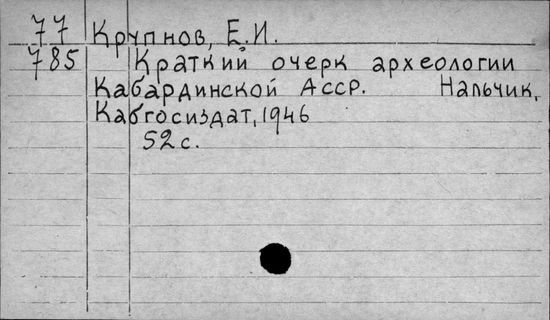 77 Крупнов, Е.И.
785 Краткий очерк археологии
Кабардинской Асср. Нальчик,
Кабгосиздат, 1946
52 с.